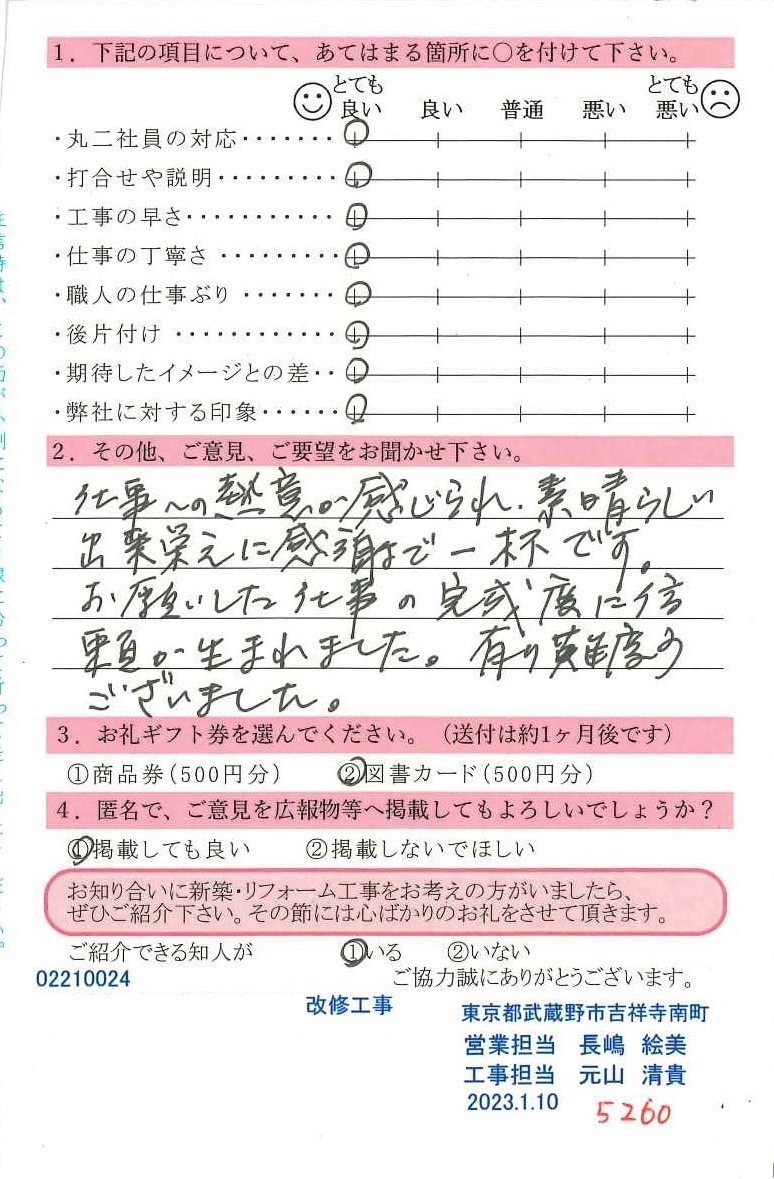 1．下記の項目について、あてはまる箇所に○を付けて下さい。
とても良い 良い 普通 悪い とても悪い
・丸二社員の対応・・・・・・・
・打合せや説明・・・・・・・・・
・工事の早さ・・・・・・・・・・・
・仕事の丁寧さ ・・・・・・・・・
・職人の仕事ぶり ・・・・・・・
・後片付け ・・・・・・・・・・・・
・期待したイメージとの差・・
・弊社に対する印象・・・・・・
2．その他、ご意見、ご要望をお聞かせ下さい。
仕事への熱意が感じられ、素晴らしい
出来栄えに感謝で一杯です。
お願いした仕事の完成度に信
頼が生まれました。有り難度う
ございました。
3．お礼ギフト券を選んでください。（送付は約1ヶ月後です）
①商品券（500円分） ②図書カード（500円分）
4．匿名で、ご意見を広報物等へ掲載してもよろしいでしょうか？
①掲載しても良い ②掲載しないでほしい
お知り合いに新築・リフォーム工事をお考えの方がいましたら、
ぜひご紹介下さい。その節には心ばかりのお礼をさせて頂きます。
ご紹介できる知人が ①いる ②いない
02210024 ご協力誠にありがとうございます。
改修工事 東京都武蔵野市吉祥寺南町
営業担当 長嶋 絵美
工事担当 元山 清貴
2023.1.10 5260